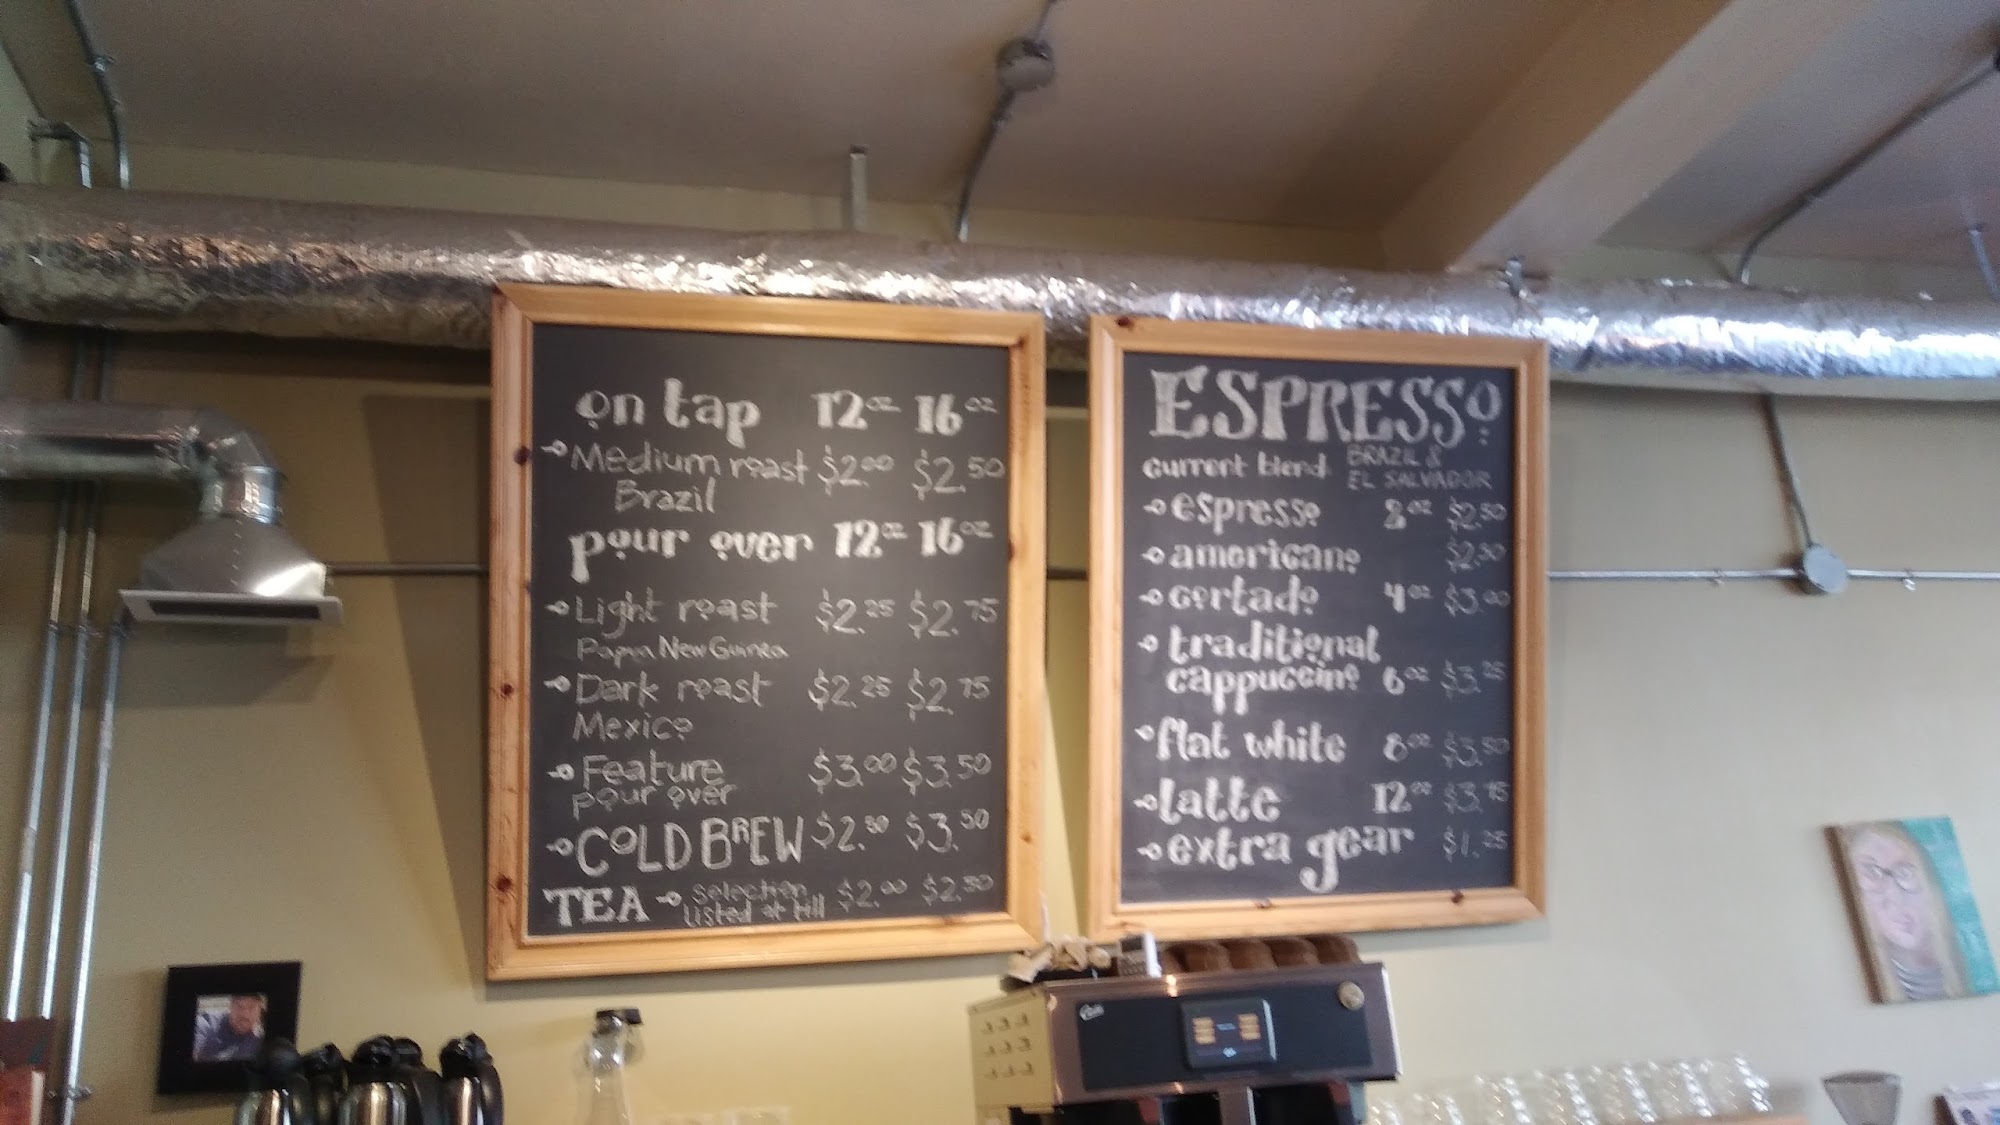 on tap 12oz 16oz
Medium roast $2.00 $2.50
Brazil
pour over 12oz 16oz
Light roast $2.25 $2.75
Papua New Guinea
Dark roast $2.25 $2.75
Mexico
Feature $3.00 $3.50
pour over
COLD BREW $2.50 $3.50
TEA selection $2.00 $2.50
listed at till
ESPRESSO
current blend: BRAZIL &
EL SALVADOR
espresso 2oz $2.50
americano $2.50
cortado 4oz $3.00
traditional
cappuccino 6oz $3.25
flat white 8oz $3.50
latte 12oz $3.75
extra gear $1.25